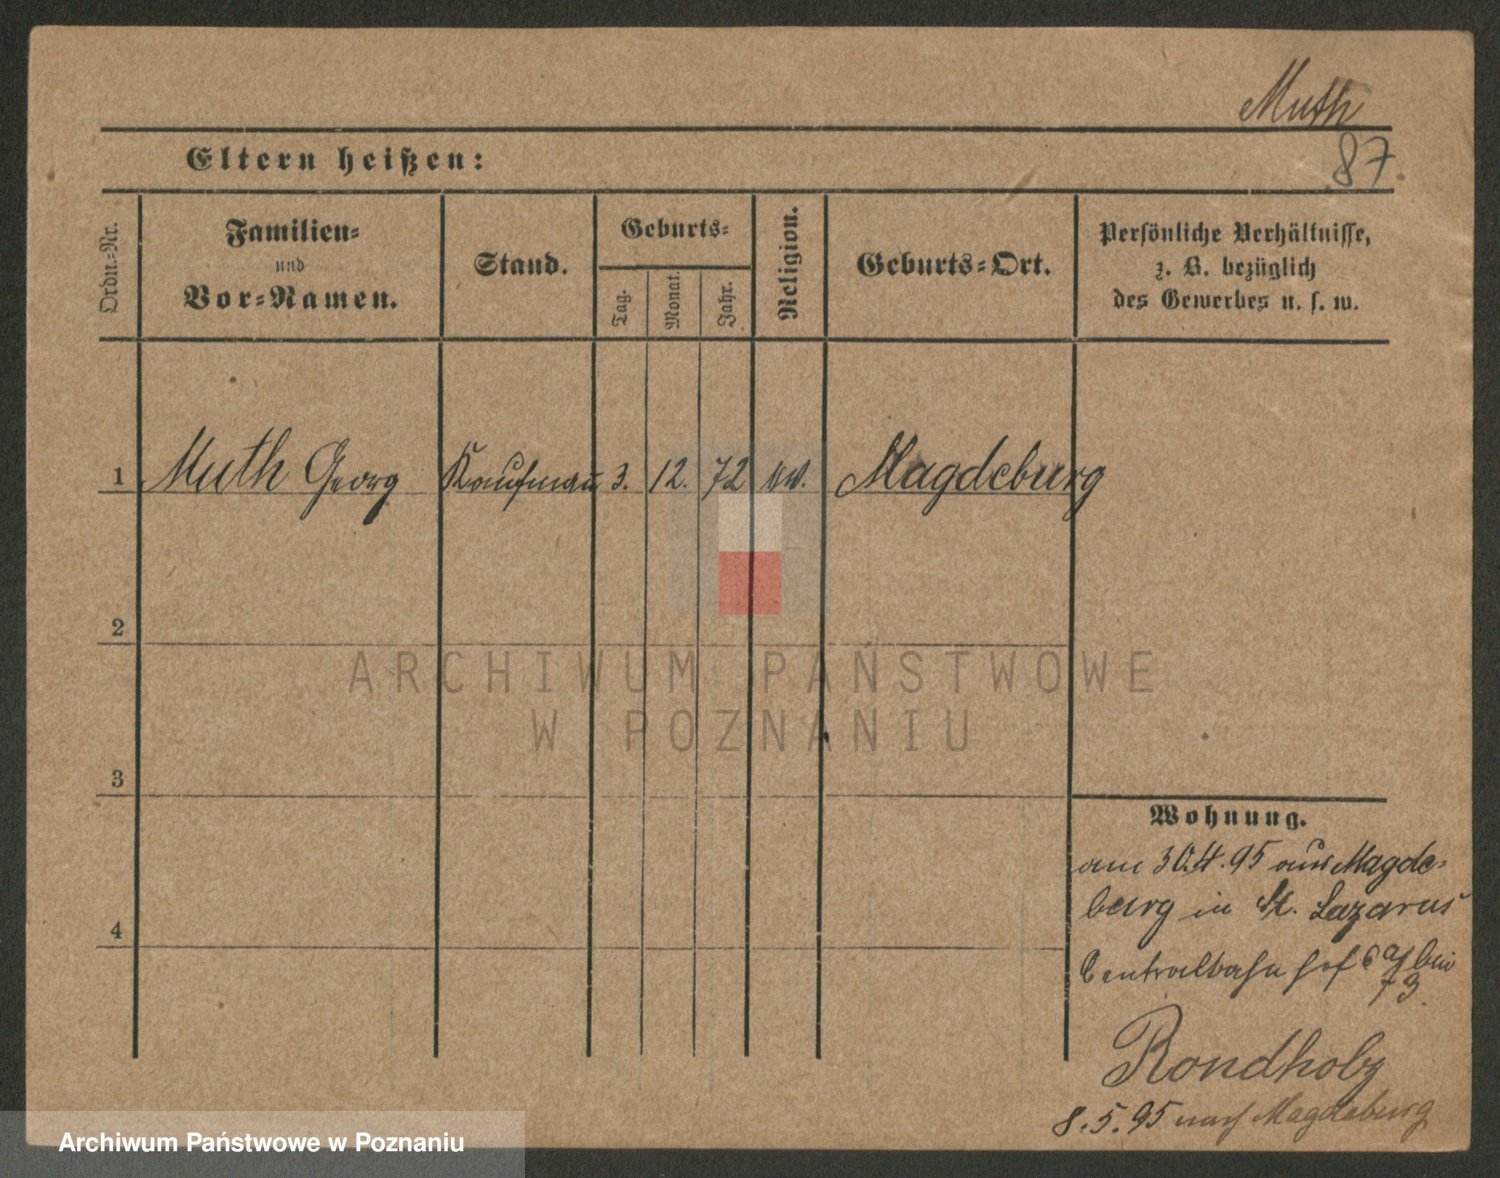 Muth
Eltern heißen:
87.
Ordn.-Nr.
Familien-
und
Vor-Namen.
Stand.
Geburts-
Tag.
Monat.
Jahr.
Religion.
Geburts-Ort.
Persönliche Verhältnisse,
z. B. bezüglich
des Gewerbes u. s. w.
1 Muth Georg Kaufmann 3. 12. 72 Magdeburg
2
ARCHIWUM PAŃSTWOWE
W POZNANIU
3
Wohnung.
am 30.4.95 aus Magde-
burg in St. Lazarus
4
Centralbahnhof bei
Rondholz
8.5.95 nach Magdeburg
Archiwum Państwowe w Poznaniu